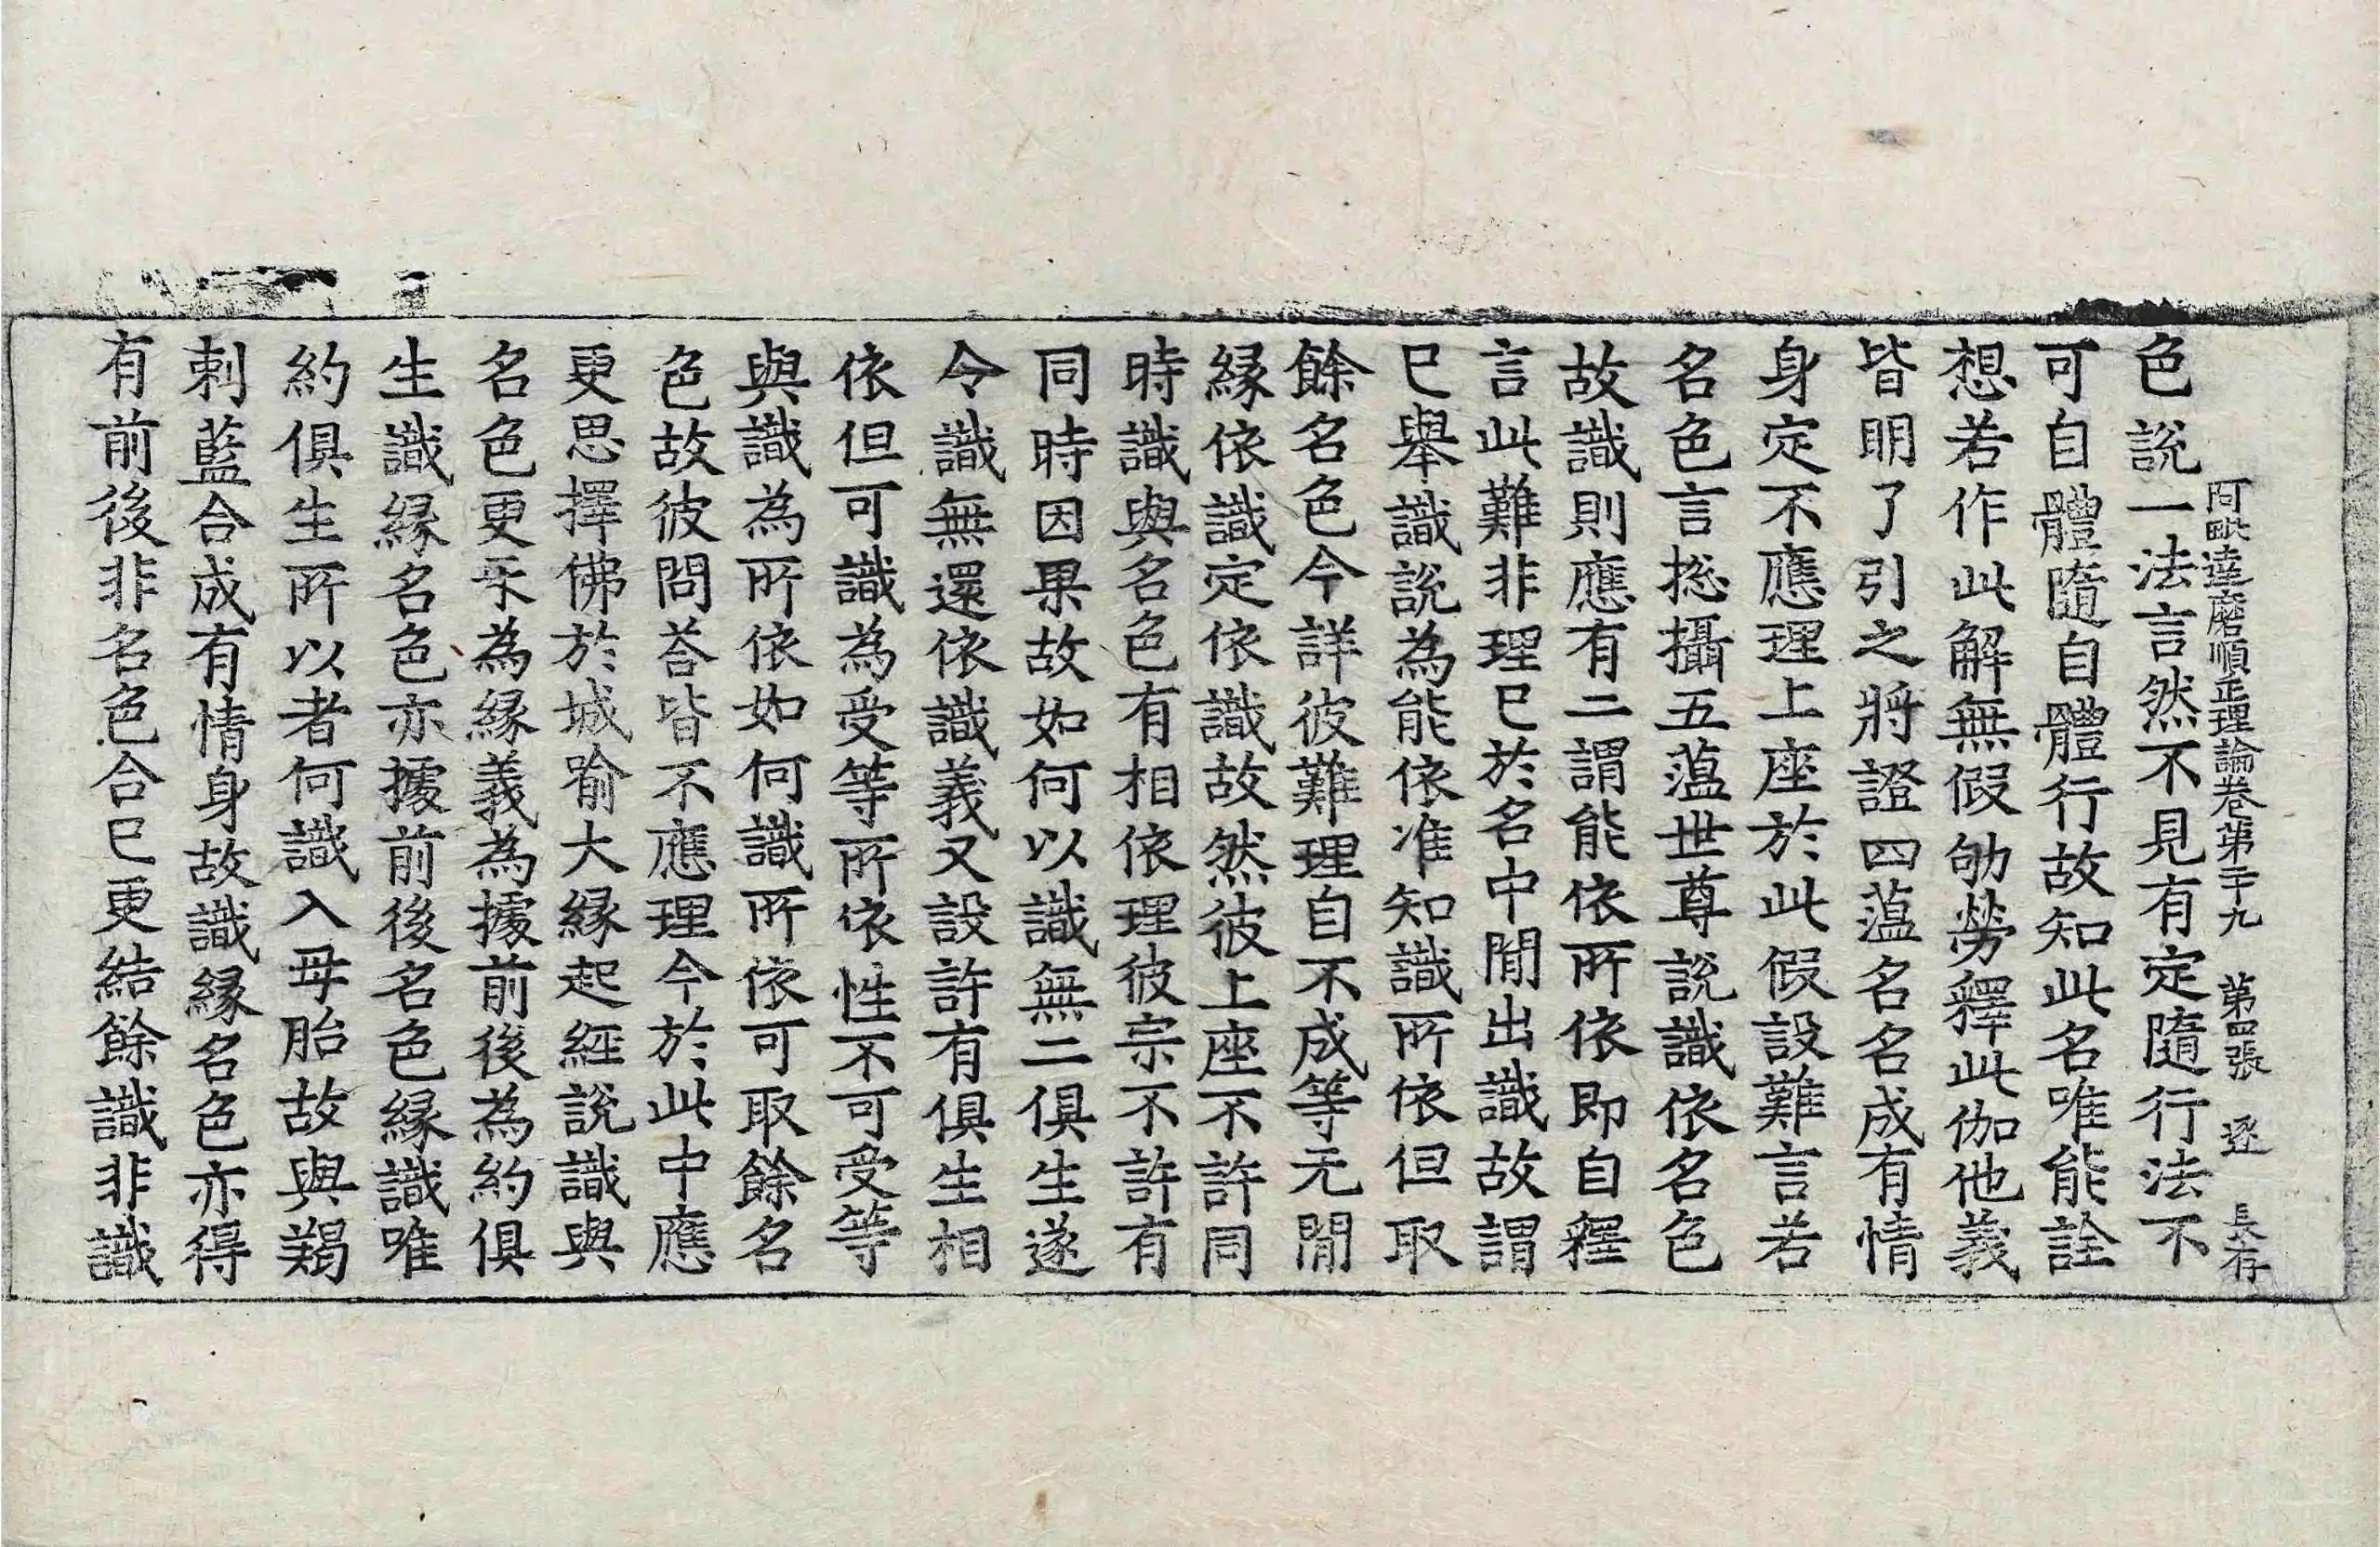 阿毗達磨順正理論卷第二十九 第四張 逐 長存
色說一法言然不見有定隨行法不
可自體隨自體行故知此名唯能詮
想若作此解無假劬勞釋此伽他義
皆明了引之將證四薀名名成有情
身定不應理上座於此假設難言若
名色言揔攝五薀世尊說識依名色
故識則應有二謂能依所依即自釋
言此難非理已於名中閒出識故謂
已舉識說為能依准知識所依但取
餘名色今詳彼難理自不成等无閒
緣依識定依識故然彼上座不許同
時識與名色有相依理彼宗不許有
同時因果故如何以識無二俱生遂
令識無還依識義又設許有俱生相
依但可識為受等所依性不可受等
與識為所依如何識所依可取餘名
色故彼問荅皆不應理今於此中應
更思擇佛於城喻大緣起經說識與
名色更㸦為緣義為據前後為約俱
生識緣名色亦據前後名色緣識唯
約俱生所以者何識入母胎故與羯
剌藍合成有情身故識緣名色亦得
有前後非名色合已更結餘識非識